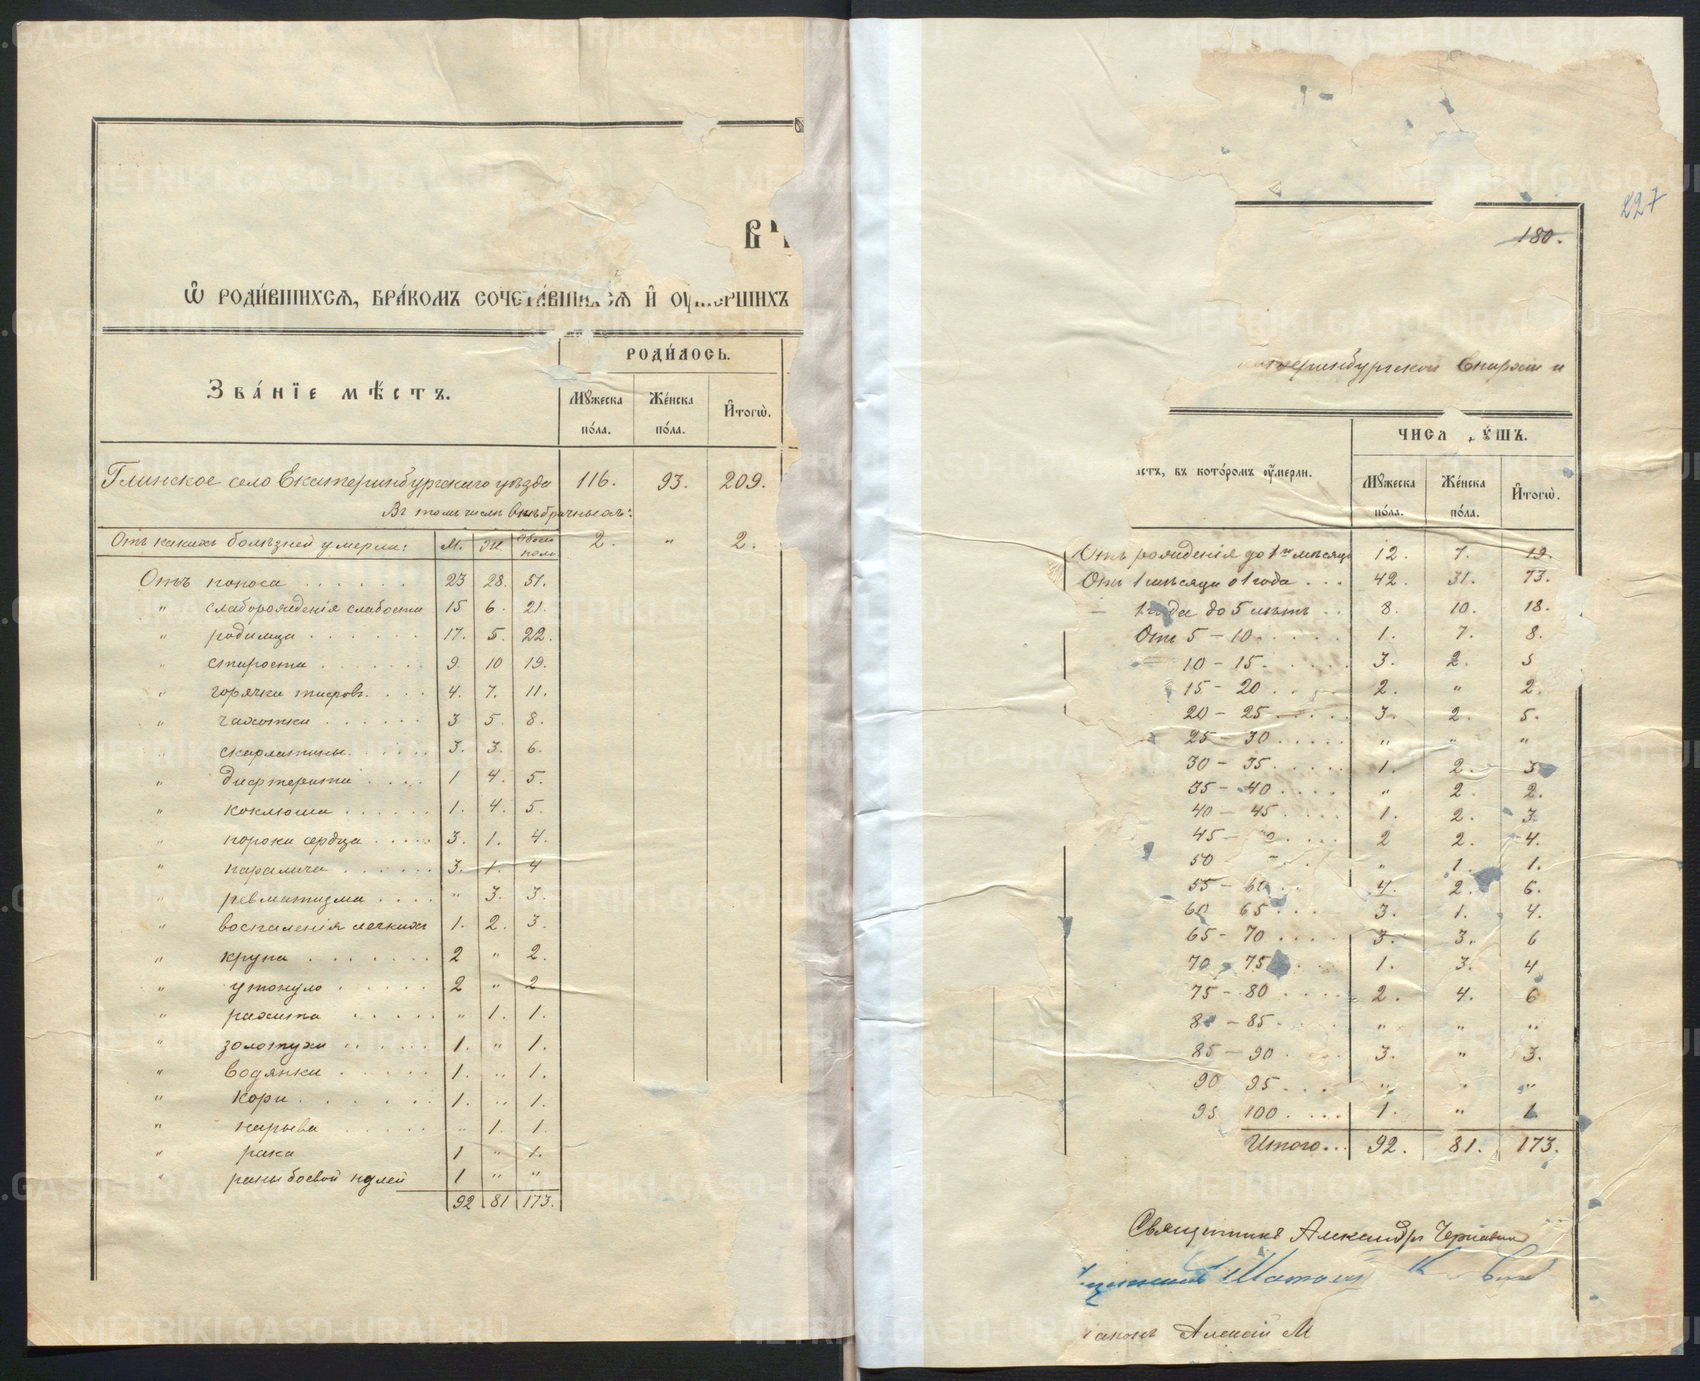 Ѿ РОДИ́ВШИХСѦ, БРА́КОМЪ СОЧЕТА́ВШИХСѦ И҆ ОУ҆МЕРШИХЪ
ЗВА́НЇЕ МѢ́СТЪ.
РОДИ́ЛОСЬ.
Мꙋ́жеска по́ла.
Же́нска по́ла.
И҆того̀.
Глинское село Екатеринбургскаго уѣзда 116. 93. 209.
Въ томъ числѣ внѣбрачныхъ:
2. " 2.
Отъ какихъ болѣзней умерли: М. Ж Обоего пола
Отъ поноса 23 28. 51.
" слаборожденія слабости 15 6. 21.
" родимца 17. 5. 22.
" старости 9. 10 19.
" горячки тифозн. 4. 7. 11.
" чахотки 3 5. 8.
" скарлатины 3. 3. 6.
" дифтерита 1 4. 5.
" коклюша 1. 4. 5.
" порока сердца 3. 1. 4.
" паралича 3. 1. 4
" ревматизма " 3. 3.
" воспаленія легкихъ 1. 2. 3.
" крупа 2 " 2.
" утонуло 2 " 2
" рахита " 1. 1.
" золотухи 1. " 1.
" водянки 1. " 1.
" кори 1. " 1.
" нарыва " 1. 1.
" рака 1 " 1.
" раны боевой пулей 1 " "
92 81 173.
227
180.
Екатеринбургской Епархіи и
въ кото́ромъ оу҆мерли.
ЧИСЛ ДꙊШЪ.
Мꙋ́жеска по́ла.
Же́нска по́ла.
И҆того̀.
Отъ рожденія до 1го мѣсяца 12. 7. 19.
Отъ 1 мѣсяца д 1 года 42. 31. 73.
1 года до 5 лѣтъ 8. 10. 18.
Отъ 5 – 10 1. 7. 8.
10 – 15. 3. 2. 5
15 – 20 2. " 2.
20 – 25 3. 2. 5.
25 – 30 " " "
30 – 35. 1. 2. 3
35 – 40 " 2. 2.
40 – 45 1. 2. 3.
45 – 2 2. 4.
50 " 1. 1.
55 – 60 4. 2. 6.
60 65 3. 1. 4.
65 – 70 3. 3. 6
70 75 1. 3. 4
75 – 80 2. 4. 6
8 – 85 " " "
85 – 90 3. " 3.
90 95 " " "
95 100 1. " 1.
Итого 92. 81. 173.
Священникъ Александръ
Алексій М
METRIKI.GASO-URAL.RU